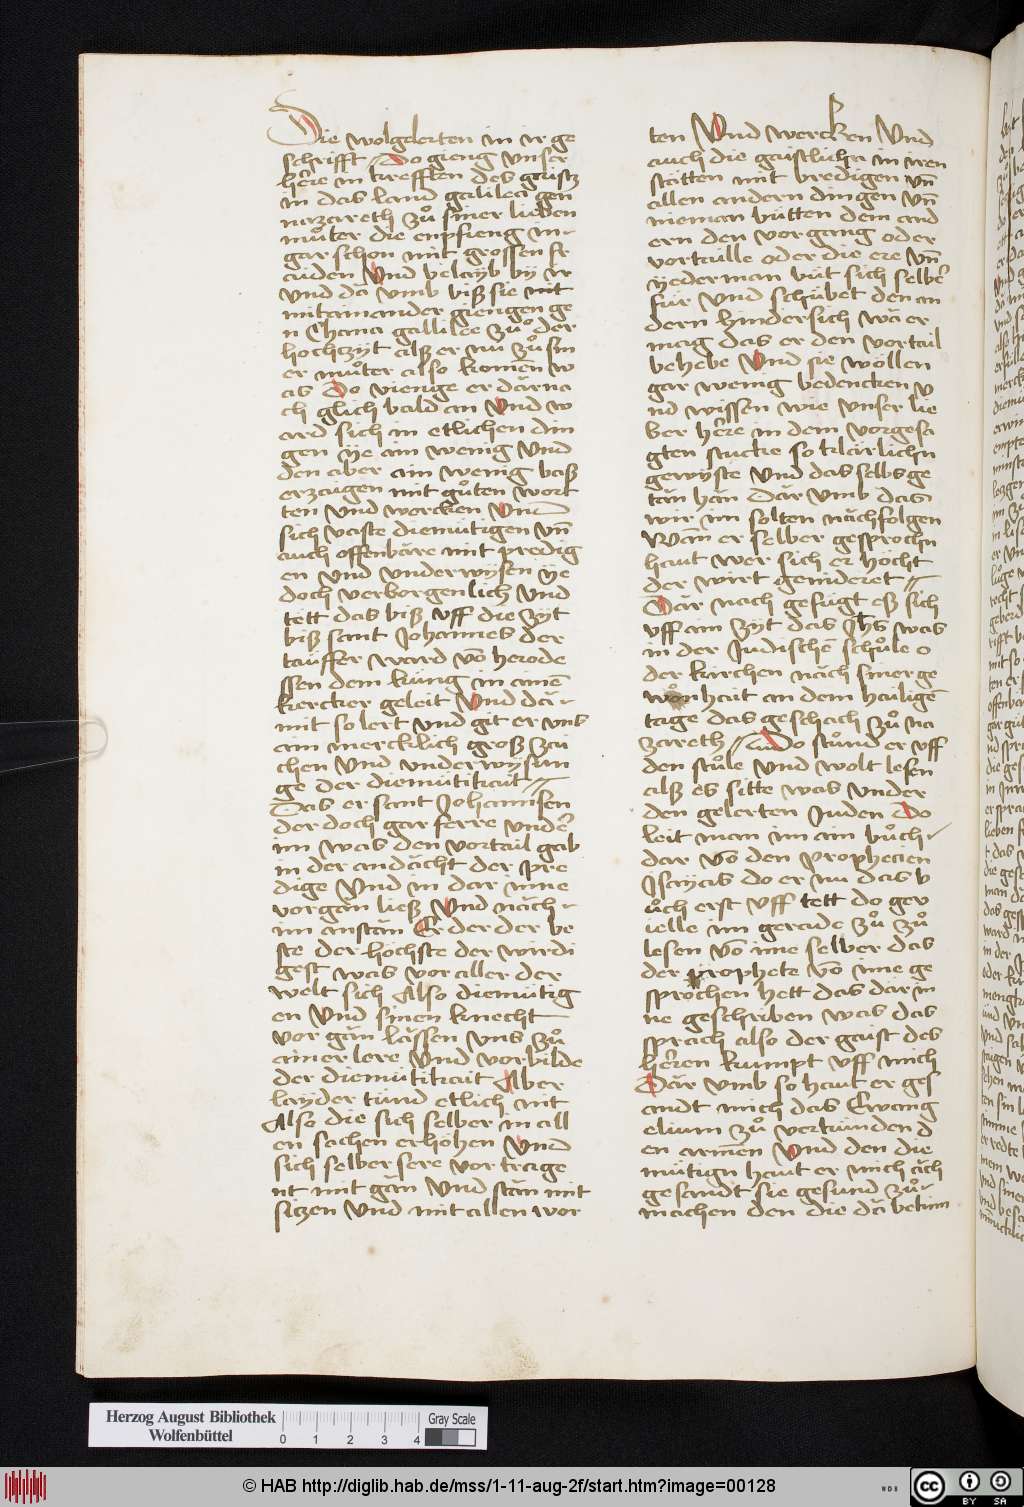 Die wolgelerten in ir ge
schrifft Do gieng unser
here in krefften des gaistz
in das land galilea gen
nazareth zů siner lieben
můter die enpfieng in
gar schon mit grossen fr
äiden Vnd belayb by ir
vnd dā vmb biß sie mit
mitainander giengen ge
n Chana gallilee zů der
hochzyt alß er nu zů sin
er můter also komen w
as Do vienge er därna
ch glich bald an Vnd w
ard sich in etlichen din
gen ye ain wenig Vnd
den aber ain wenig baß
erzaigen mit gůten wort
ten vnd wercken Vnd
sich vaste diemütigen vn̄
auch offenbāre mit predig
en vnd vnderwysen ye
doch verborgenlich vnd
tett das biß vff die zyt
biß sant Johannes der
täuffer ward vō herode
ssen dem küng in ainē
kercker geleit Vnd dār
mit so lert vnd git er vns
ain mercklich groß zai
chen vnd vnderwysun
ge der diemütikait
Das er sant Johannsen
der doch gar ferre vnder
im was den vortail gab
in der andācht der pre
dige Vnd in dar inne
vorgān ließ Vnd nāch
im anstān Er der der be
ste der höchste der wirdi
gest was vor aller der
welt sich Also diemütig
en Vnd sinen knecht
vor gān lāssen vns zů
ainer lere Vnd vorbilde
der diemütikait Aber
layder tünd etlich nit
Also die sich selber in all
en sachen erhöhen Vnd
sich selber sere vor trage
nt mit gān Vnd stān mit
sitzen Vnd mit allen wor
ten Vnd wercken Vnd
auch die gaistlichn in iren
stātten mit bredigen vn̄
allen andern dingen vn̄
nieman bütten dem and
ern den vorgang oder
vortaille oder die ere vn̄
yederman büt sich selber
für Vnd schübet den an
dern hindersich wā er
mag das er den vortail
behebe Vnd sie wöllen
gar wenig bedencken v
nd wissen wie vnser lie
ber here in dem vorgesa
gten stucke so klārlichn
gewyste Vnd das selbs ge
tān hān Dār vmb das
wir im solten nāchfolgen
Wān er selber gesprochn
haut wer sich er höcht
der wirt genideret
Dār nach gefügt eß sich
vff ain zyt das Jhs was
in der Judischē schůle o
der kirchen nāch siner ge
wonhait an dem hailigē
tage das geschach zů na
zareth Do stůnd er vff
den stůle Vnd wolt lesen
alß es sitte was vnder
den gelerten Juden Do
leit man im ain bůch
dar vō den prophecien
Jsayas do er nu das b
ůch erst vff tett do gev
ielle im gerade zů zů
lesen vō ime selber das
der prophete vō ime ge
sprochen hett das dār in
ne geschriben was das
sprach also der gaist des
heren kumpt vff mich
Dār vmb so haut er ges
andt mich das Ewang
elium zů verkünden d
en armen Vnd den die
mütign haut er mich āch
gesandt sie gesund zů
machen den die dā betrim
Herzog August Bibliothek
Wolfenbüttel
0 1 2 3 4
Gray Scale
© HAB http://diglib.hab.de/mss/1-11-aug-2f/start.htm?image=00128
WDB
CC BY SA